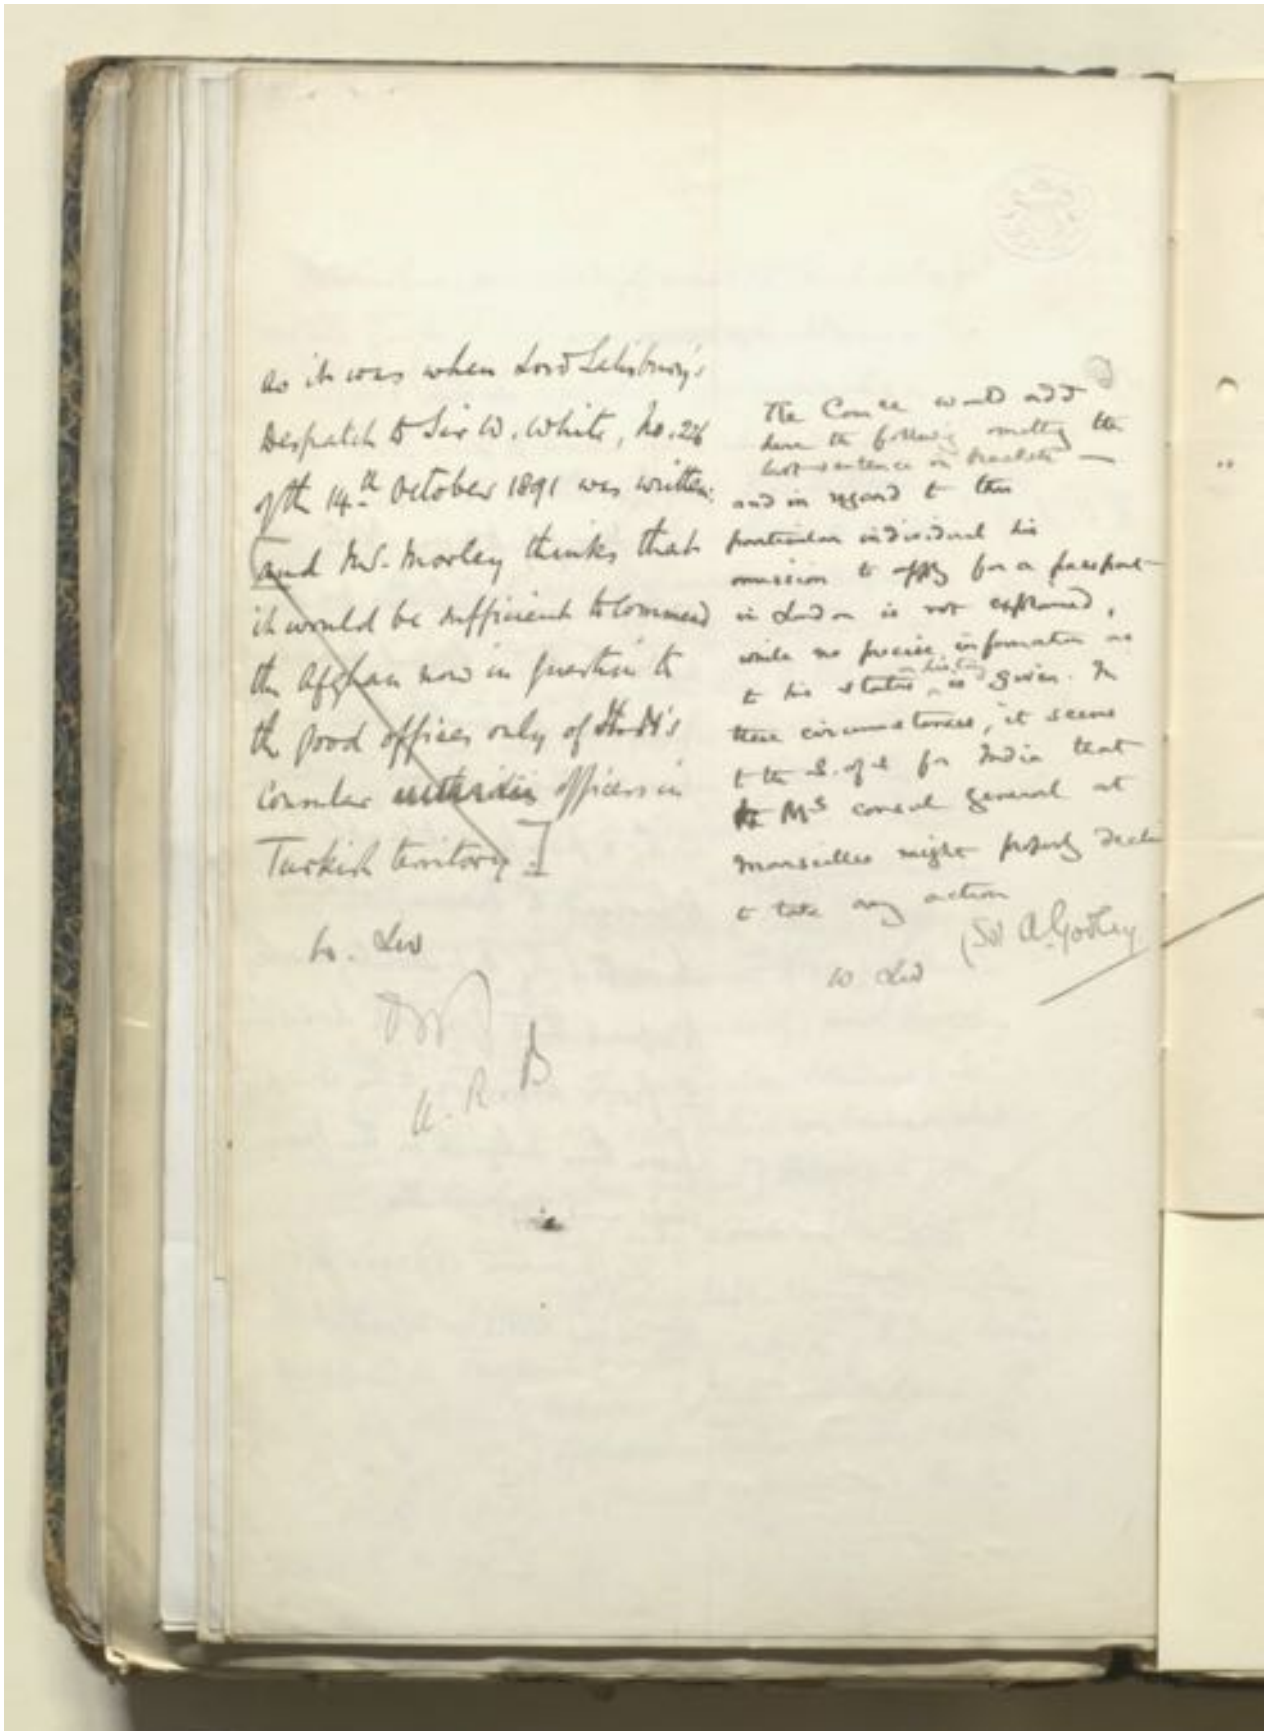 as it was when Lord Salisbury's
Despatch to Sir W. White, No. 226
of the 14th October 1891 was written:
[and Mr. Morley thinks that
it would be sufficient to commend
the Afghan now in question to
the good offices only of H.M's
Consular officers in
Turkish territory.]
A. R. B
The would add
here the following omitting the
last sentence in brackets —
and in regard to this
particular individual his
omission to apply for a passport
in London is not explained,
while no precise information as
to his status is given. In
these circumstances, it seems
to the S. of S for India that
H Ms consul general at
Marseilles might properly
to take any action
(Sd) A. Godley